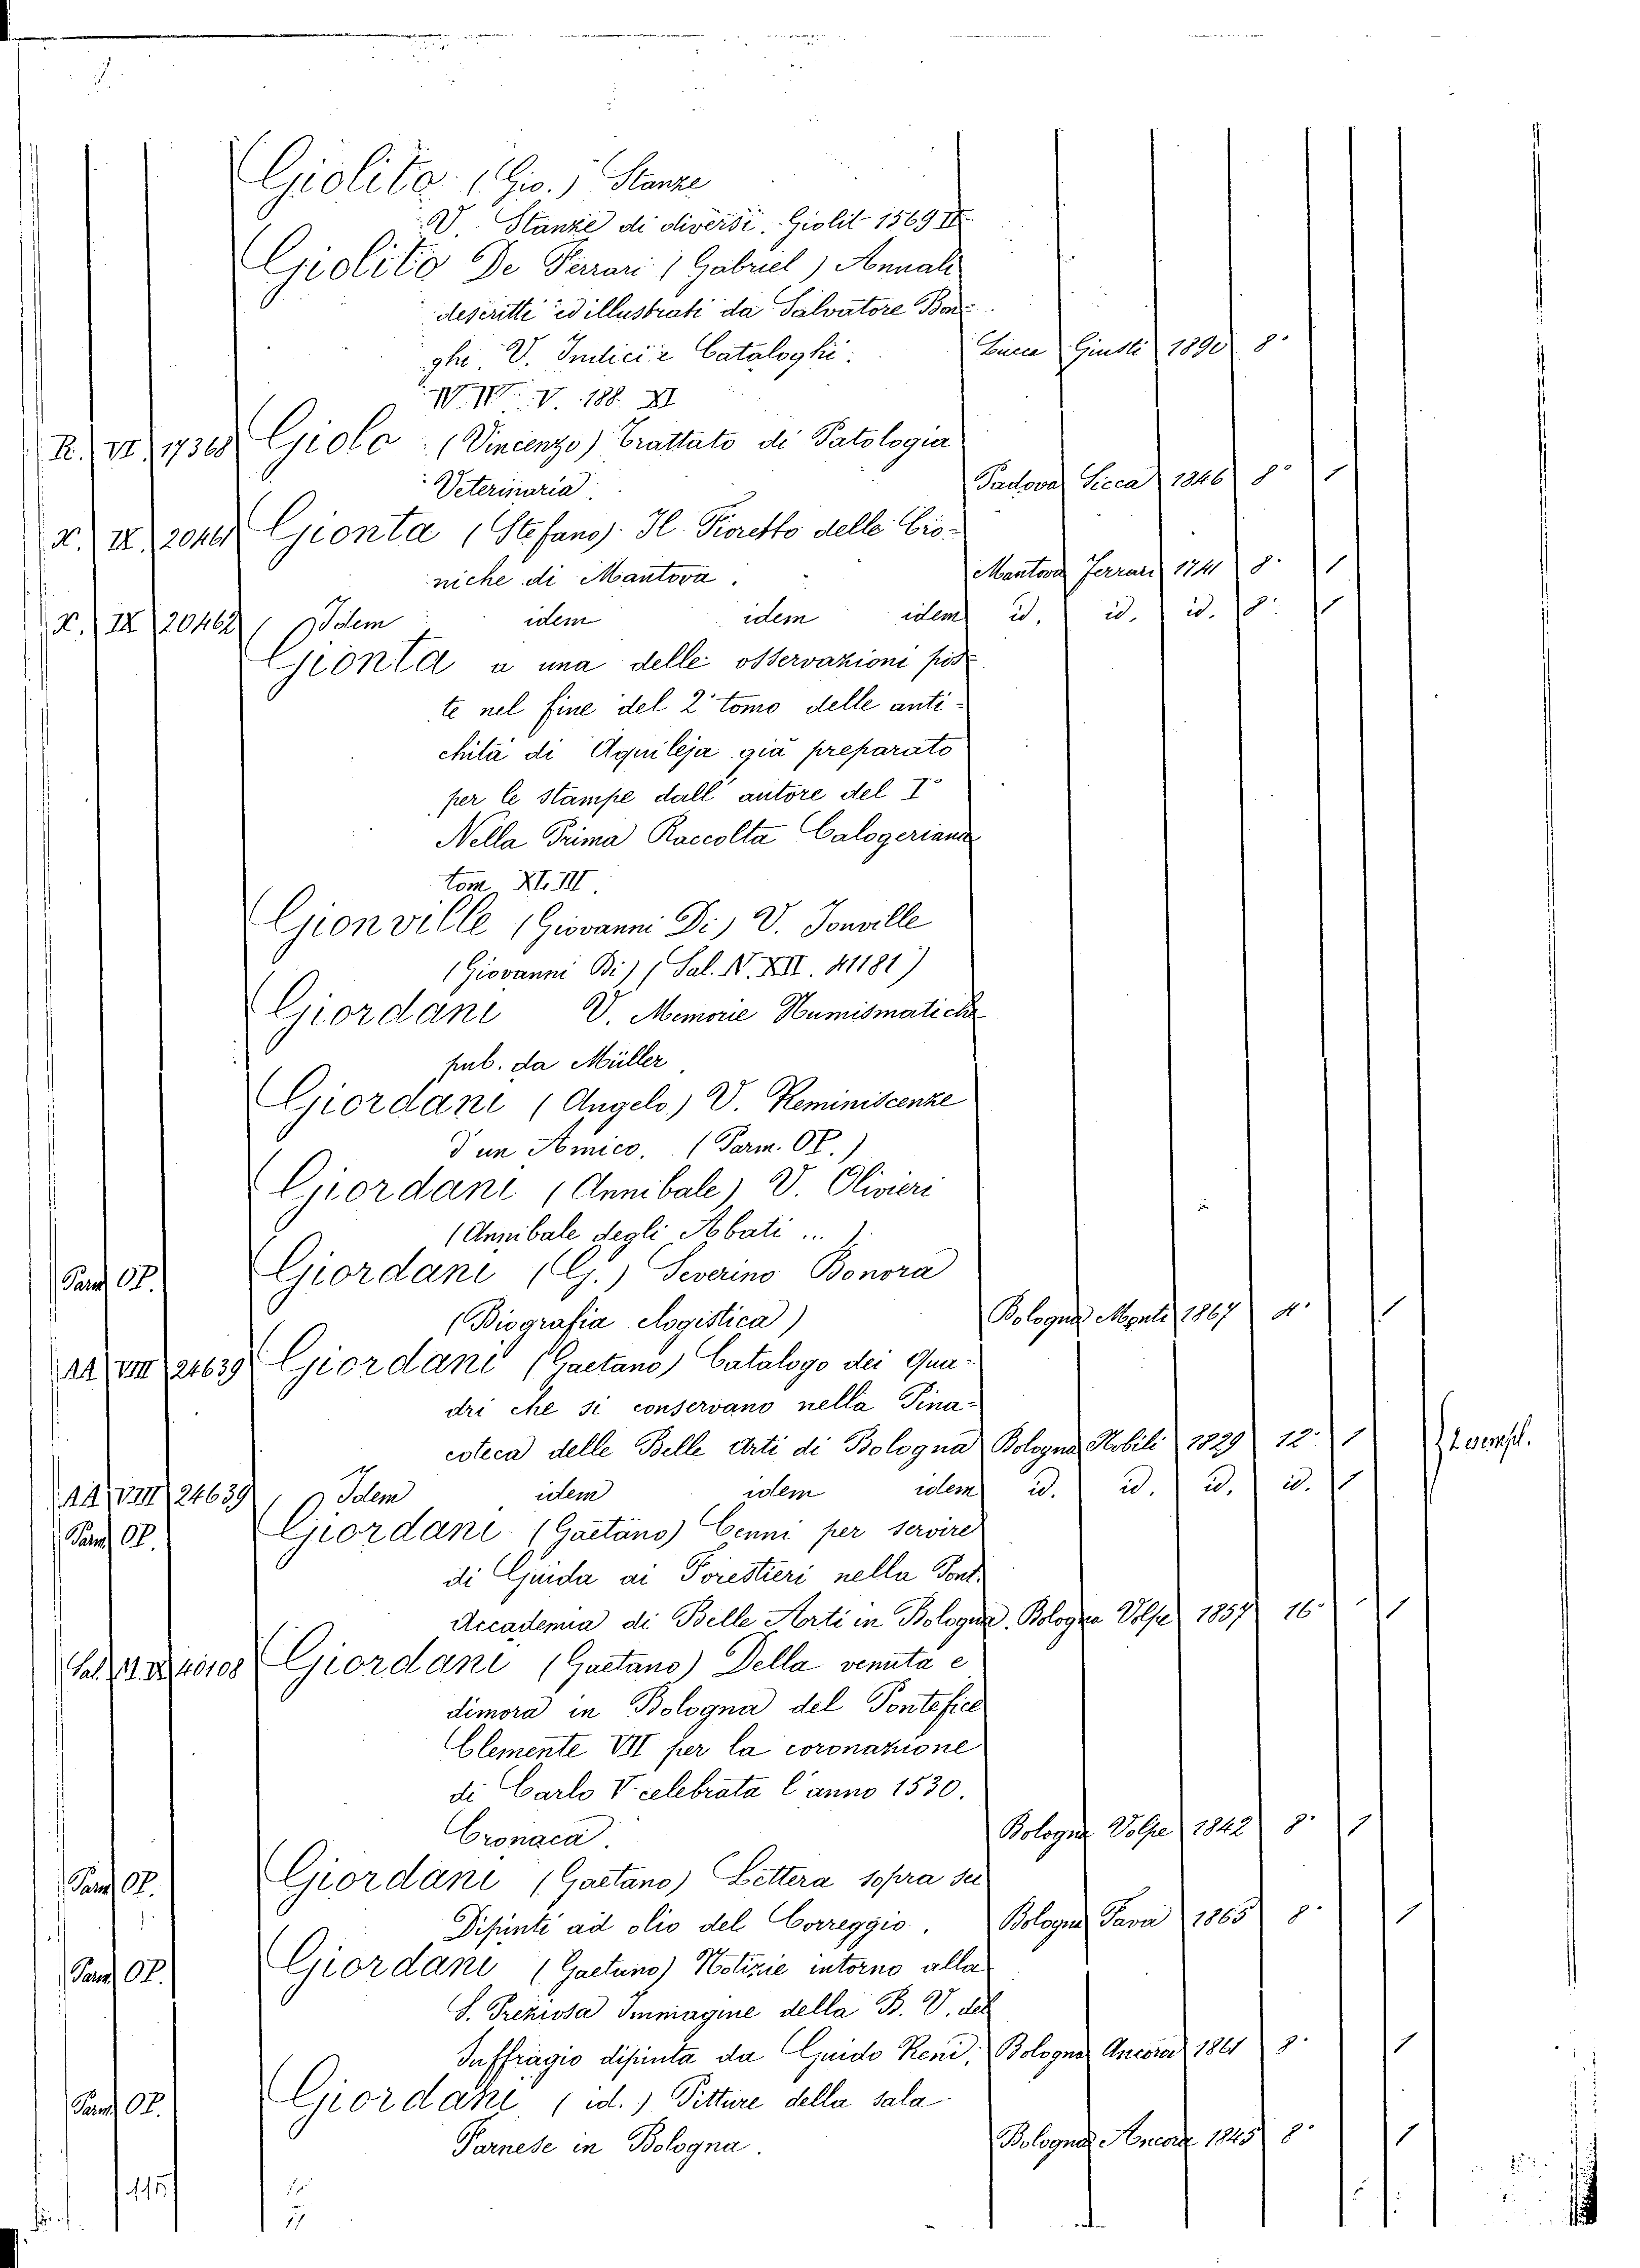 Giolito (Gio.) Stanze
V. Stanze di diversi. Giolit 1569 II
Giolito De Ferrari (Gabriel) Annali
descritti ed illustrati da Salvatore Bon-
ghi. V. Indici e Cataloghi. Lucca Giusti 1890 8º
IV. IV. V. 188. XI
R. VI 17368 Giolo (Vincenzo) Trattato di Patologia
Veterinaria. Padova Sicca 1846 8º 1
X. IX. 20461 Gionta (Stefano) Il Fioretto delle Cro-
niche di Mantova. Mantova Ferrari 1741 8º 1
X. IX 20462 Idem idem idem idem id. id. id. 8º 1
Gionta a una delle osservazioni pos-
te nel fine del 2º tomo delle anti-
chità di Aquileja già preparato
per le stampe dall' autore del Iº
Nella Prima Raccolta Calogeriana
tom. XLIII.
Gionville (Giovanni Di) V. Jonville
(Giovanni Di) (Sal. N. XII. 41181)
Giordani V. Memorie Numismatiche
pub. da Müller
Giordani (Angelo) V. Reminiscenze
d'un Amico. (Parm. OP.)
Giordani (Annibale) V. Olivieri
(Annibale degli Abati ...)
Parm OP. Giordani (G.) Severino Bonora
(Biografia elogistica) Bologna Monti 1867 4º 1
AA VIII 24639 Giordani (Gaetano) Catalogo dei Qua-
dri che si conservano nella Pina-
coteca delle Belle Arti di Bologna Bologna Nobili 1829 12º 1 2 esempl.
AA VIII 24639 Idem idem idem idem id. id. id. id. 1
Parm OP. Giordani (Gaetano) Cenni per servire
di Guida ai Forestieri nella Pont.
Accademia di Belle Arti in Bologna. Bologna Volpe 1857 16º 1
Sal. 40108 Giordani (Gaetano) Della venuta e
dimora in Bologna del Pontefice
Clemente VII per la coronazione
di Carlo V celebrata l'anno 1530.
Cronaca. Bologna Volpe 1842 8º 1
Parm OP. Giordani (Gaetano) Lettera sopra sei
Dipinti ad olio del Correggio. Bologna Fava 1865 8º 1
Parm OP. Giordani (Gaetano) Notizie intorno alla
S. Preziosa Immagine della B. V. del
Suffragio dipinta da Guido Reni. Bologna Ancora 1841 8º 1
Parm OP. Giordani (id.) Pitture della sala
Farnese in Bologna. Bologna Ancora 1845 8º 1
115